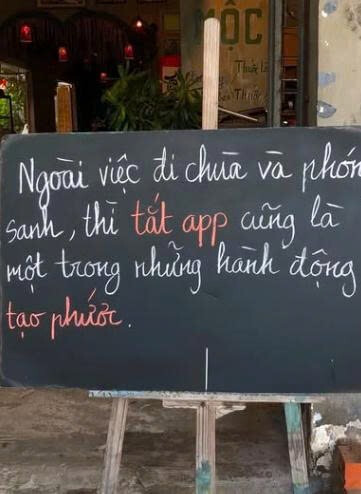 MỘC
Ngoài việc đi chùa và phón
sanh, thì tắt app cũng là
một trong những hành động
tạo phước.